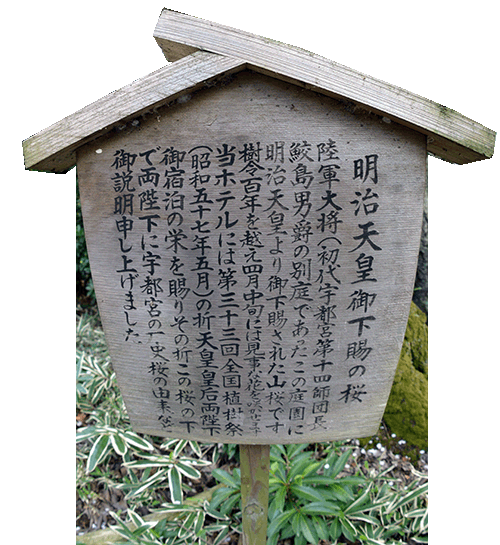 明治天皇御下賜の桜
陸軍大将(初代宇都宮第十四師団長
鮫島男爵の別庭であったこの庭園に
明治天皇より御下賜された山桜です
樹令百年を越え四月中旬には見事な花を咲かせます
当ホテルには第三十三回全国植樹祭
(昭和五十七年五月)の折天皇皇后両陛下
御宿泊の栄を賜りその折この桜の下
で両陛下に宇都宮の 史 桜の由来など
御説明申し上げました